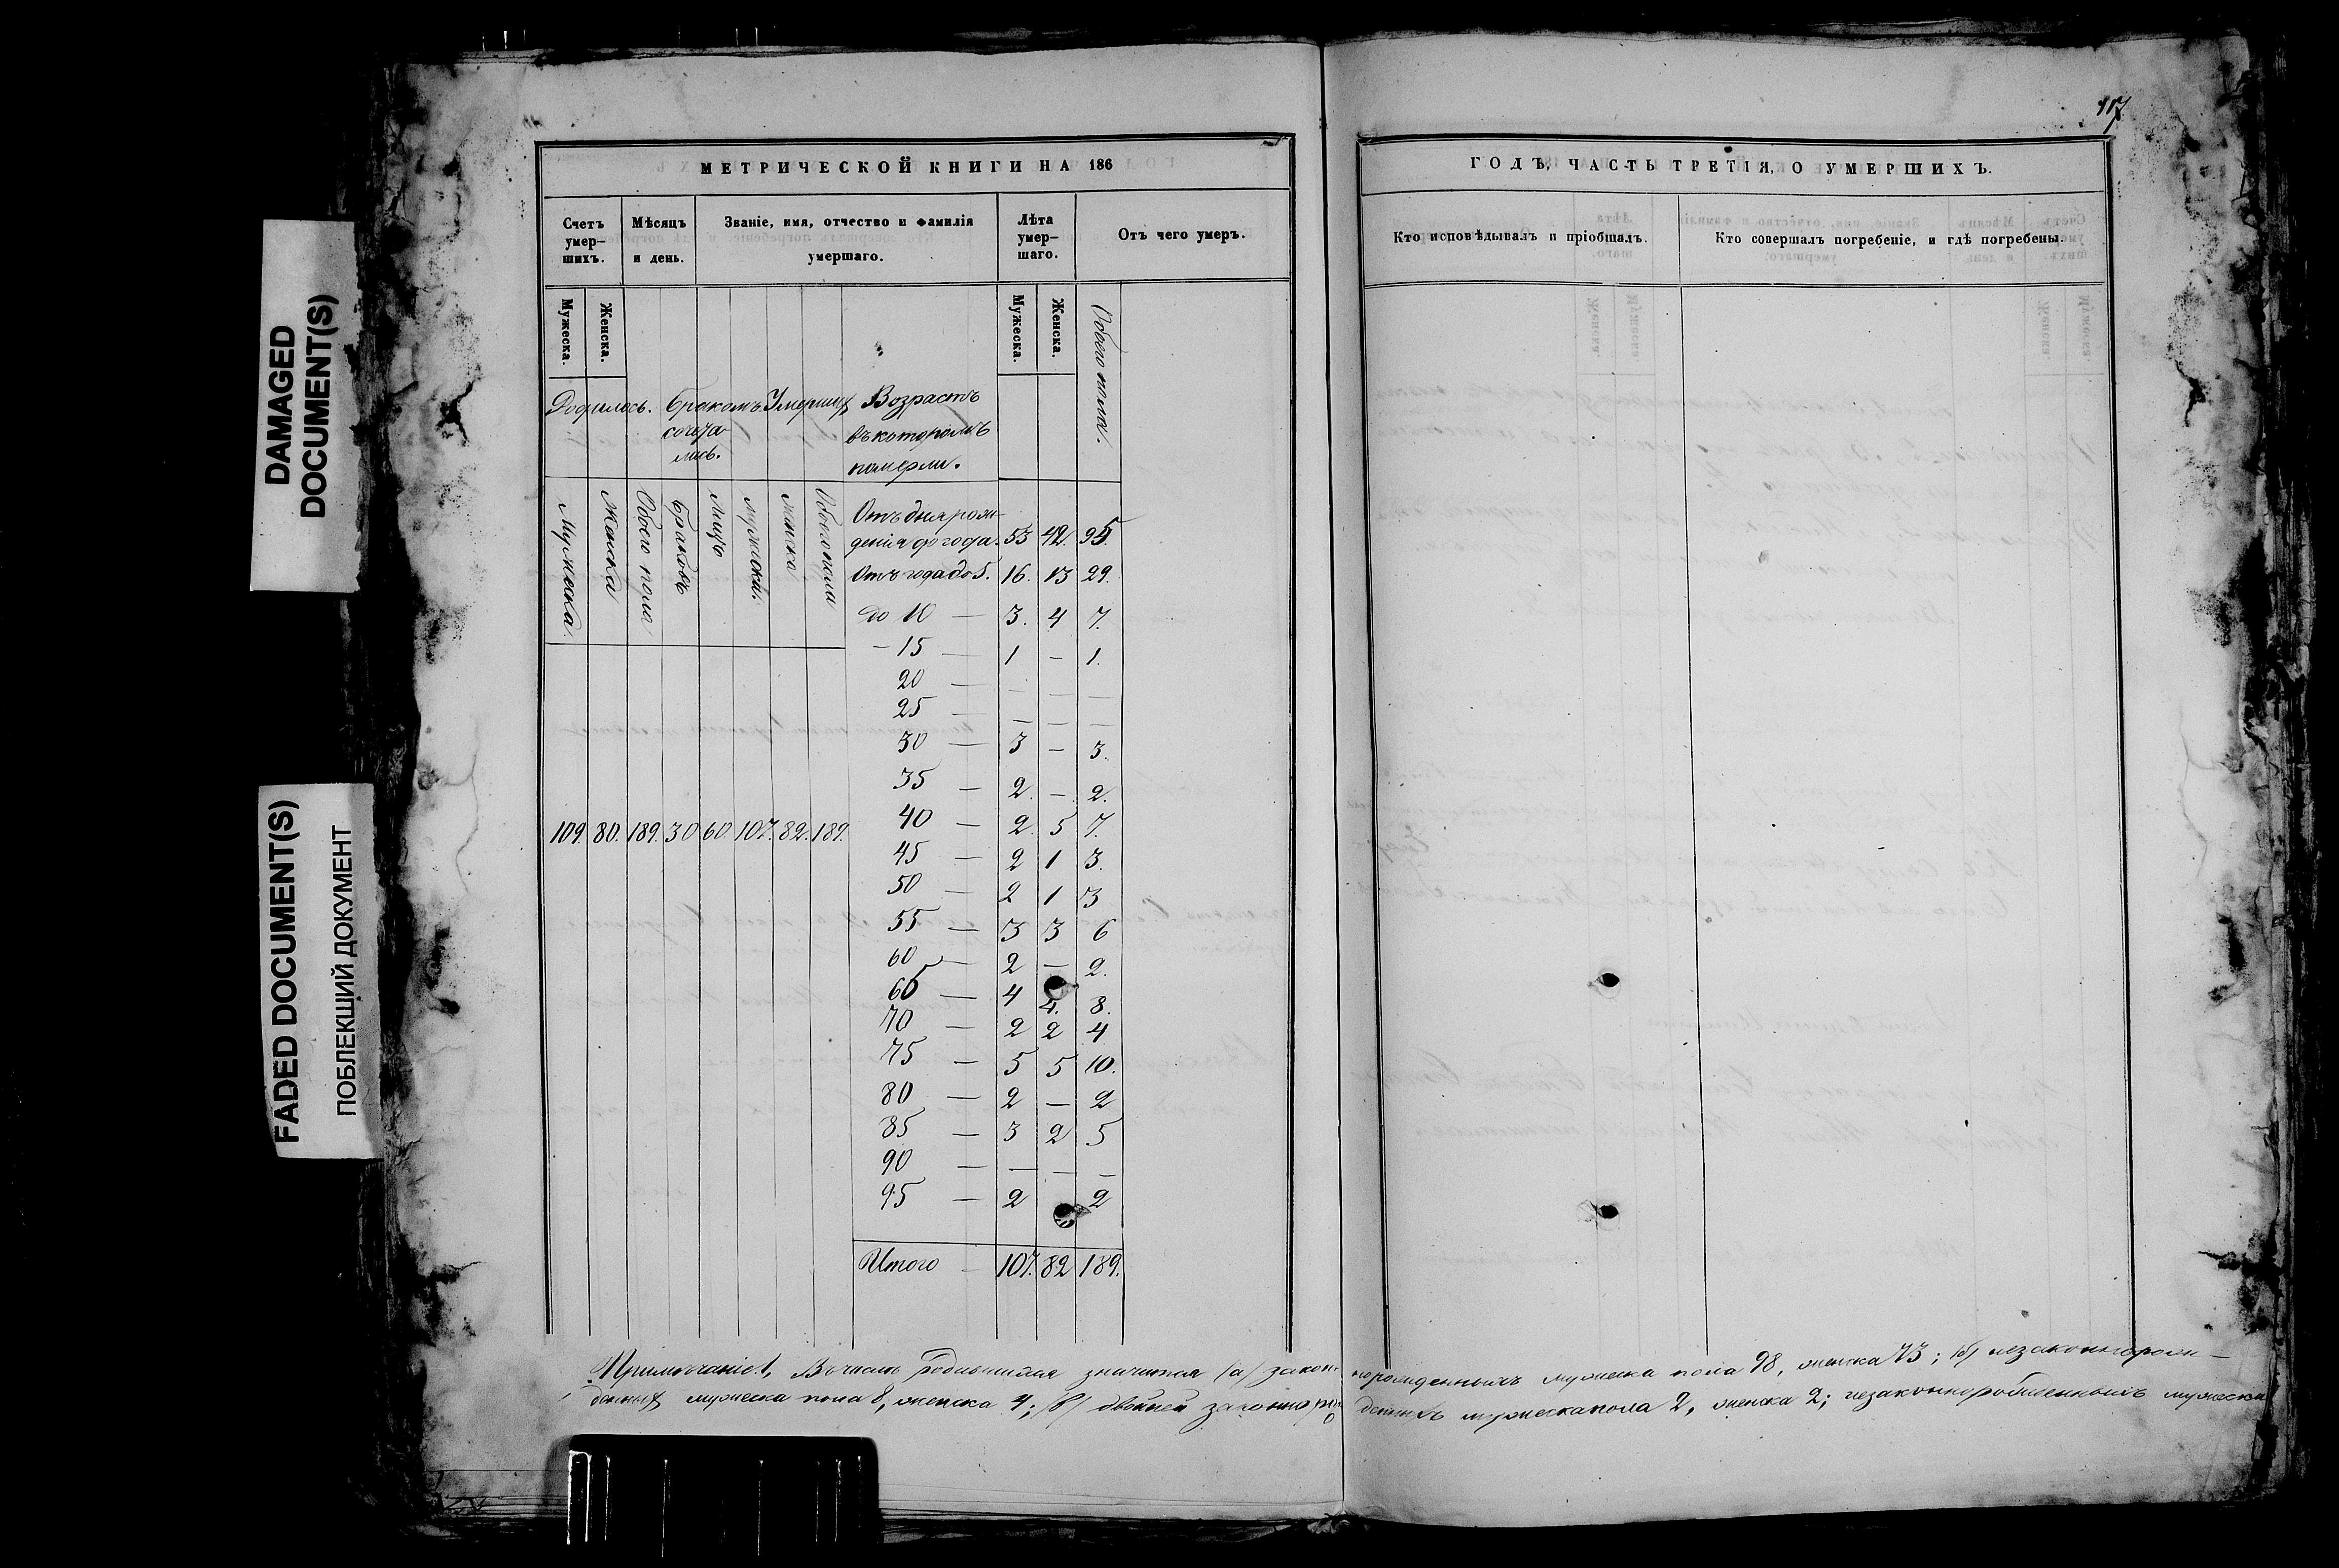 117
DAMAGED
DOCUMENT(S)
FADED DOCUMENT(S)
ПОБЛЕКЩИЙ ДОКУМЕНТ
МЕТРИЧЕСКОЙ КНИГИ НА 186
Счетъ умер-шихъ.
Мѣсяцъ и день.
Званіе, имя, отчество и фамилія умершаго.
Лѣта умер-шаго.
Отъ чего умеръ.
Мужеска. Женска. Мужеска. Женска. Обоего пола.
Родилось. Бракомъ сочета-лись. Умершихъ Возрастъ въ которомъ померли.
Мужеска Женска Обоего пола Браковъ Лицъ мужеска. женска Обоего пола
Отъ дня рож-
денія до года. 53 42. 95.
Отъ года до 5. 16. 13 29.
до 10 — 3. 4 7.
— 15 — 1 — 1.
20 — — — —
25 — — — —
30 — 3 — 3.
35 — 2. — 2.
109. 80. 189. 30 60. 107. 82. 189.
40 — 2. 5 7.
45 — 2 1 3.
50 — 2 1 3
55 — 3 3 6
60 — 2 — 2.
65 — 4 4. 8.
70 — 2 2 4
75 — 5 5 10.
80 — 2 — 2
85 — 3 2 5
90 — — — —
95 — 2 2
Итого — 107. 82 189.
ГОДЪ, ЧАСТЬ ТРЕТІЯ, О УМЕРШИХЪ.
Кто исповѣдывалъ и пріобщалъ.
Кто совершалъ погребеніе, и гдѣ погребены.
Примѣчаніе 1, Въ числѣ родившихся значится (а) закон-норожденныхъ мужеска пола 98, женска 73; (б) незаконнорож-
денныхъ мужеска пола 8, женска 4; (в) двойней законноро-денныхъ мужеска пола 2, женска 2; незаконнорожденныхъ мужеска